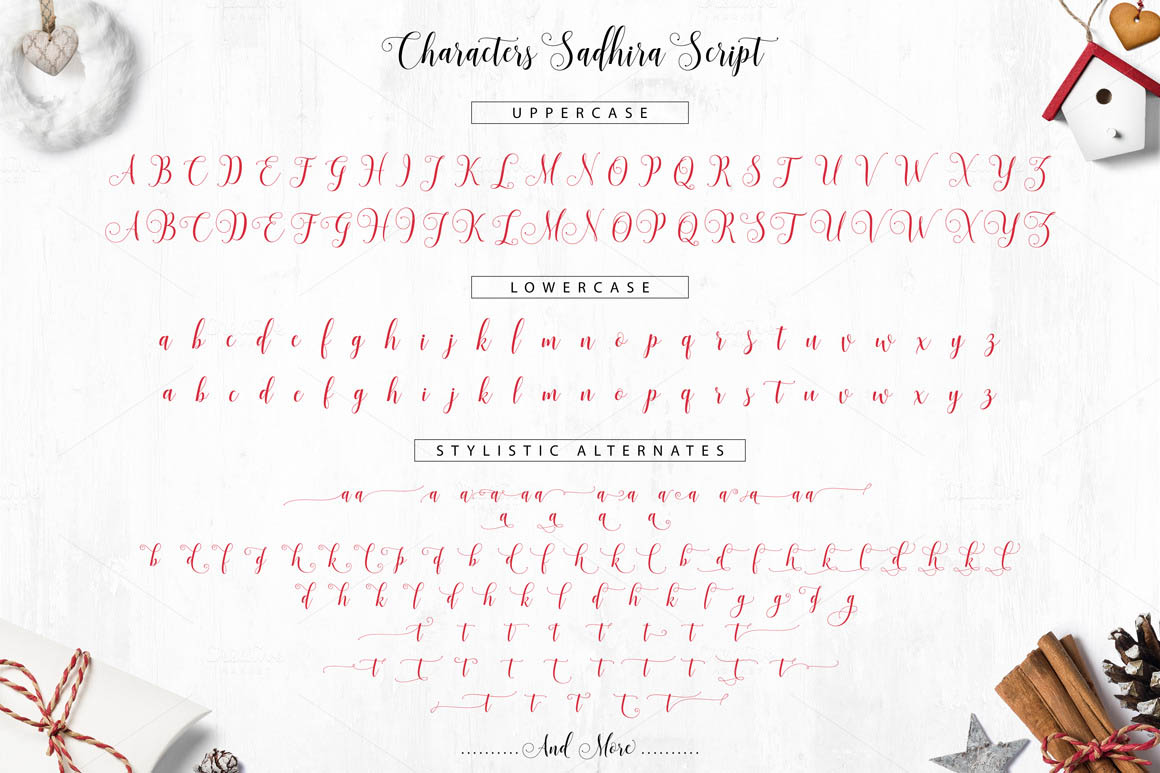 Characters Sadhira Script
UPPERCASE
A B C D E F G H I J K L M N O P Q R S T U V W X Y Z
A B C D E F G H I J K L M N O P Q R S T U V W X Y Z
LOWERCASE
a b c d e f g h i j k l m n o p q r s t u v w x y z
a b c d e f g h i j k l m n o p q r s t u v w x y z
STYLISTIC ALTERNATES
a a a a a a a a a a a a a a a
a a a a
t t t t t t t t
t t t t t t t t t t
t t t t t
..........And More..........